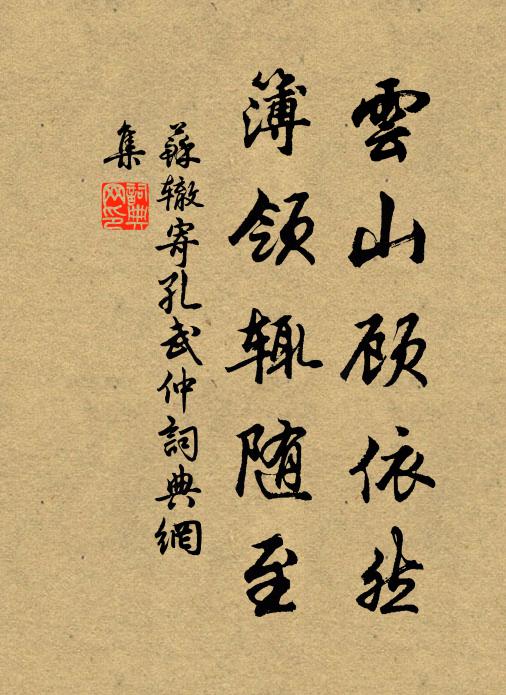 雲山顾依然
簿领辄随至
蘇辙寄孔武仲詞典網
集
詞典网印